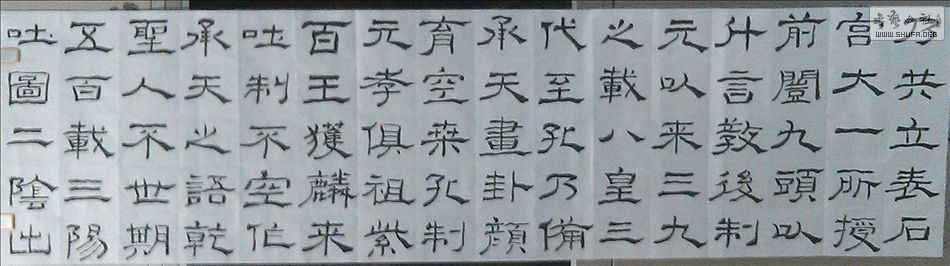 共立表石
宫大一所授
前闓九頭以
什言教後制
元以来三九
之載八皇三
代至孔乃備
承天畫卦顏
育空桒孔制
元孝俱祖紫
百王獲麟来
吐制不空作
承天之語乾
聖人不世期
五百載三陽
吐圖二陰出
WWW.SHUFA.ORG